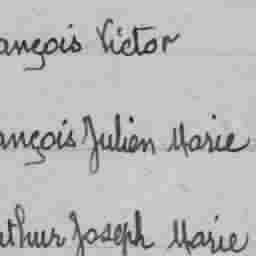 ançois Victor
ançois Julien Marie
rthur Joseph Marie